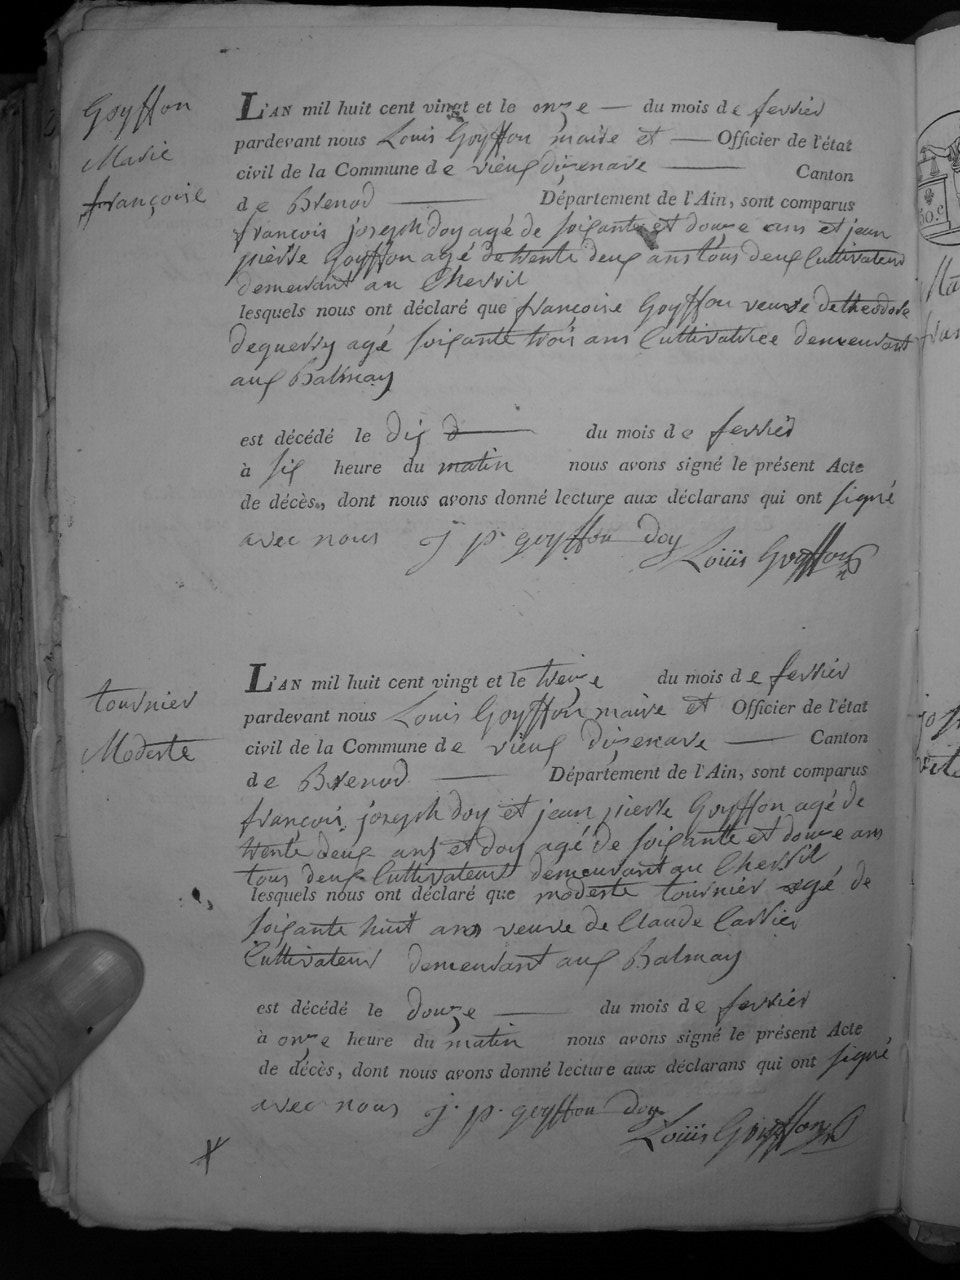 Goyffon
Marie
françoise
L'AN mil huit cent vingt et le onze du mois de fevrier
pardevant nous Louis Goyffon maire et Officier de l'état
civil de la Commune de vieux dizenave Canton
de Brenod Département de l'Ain, sont comparus
françois joseph doy agé de soixante et douze ans et jean
pierre Goyffon agé de trente deux ans tous deux Cultivateurs
demeurant au Chevril
lesquels nous ont déclaré que françoise Goyffon veuve de theodore
dequerry agé soixante trois ans Cultivatrice demeurant
aux Balmay
est décédé le dix du mois de fevrier
à six heure du matin nous avons signé le présent Acte
de décès, dont nous avons donné lecture aux déclarans qui ont signé
avec nous j p. goyffon doy
Louis Goyffon
tournier
Modeste
L'AN mil huit cent vingt et le treize du mois de fevrier
pardevant nous Louis Goyffon maire et Officier de l'état
civil de la Commune de vieux dizenave Canton
de Brenod Département de l'Ain, sont comparus
françois joseph doy et jean pierre Goyffon agé de
trente deux ans et doy agé de soixante et douze ans
tous deux Cultivateurs demeurant au Chevril
lesquels nous ont déclaré que modeste tournier agé de
soixante huit ans veuve de Claude Carrier
Cultivateur demeurant aux Balmay
est décédé le douze du mois de fevrier
à onze heure du matin nous avons signé le présent Acte
de décès, dont nous avons donné lecture aux déclarans qui ont signé
avec nous j. p. goyffon doy
Louis Goyffon